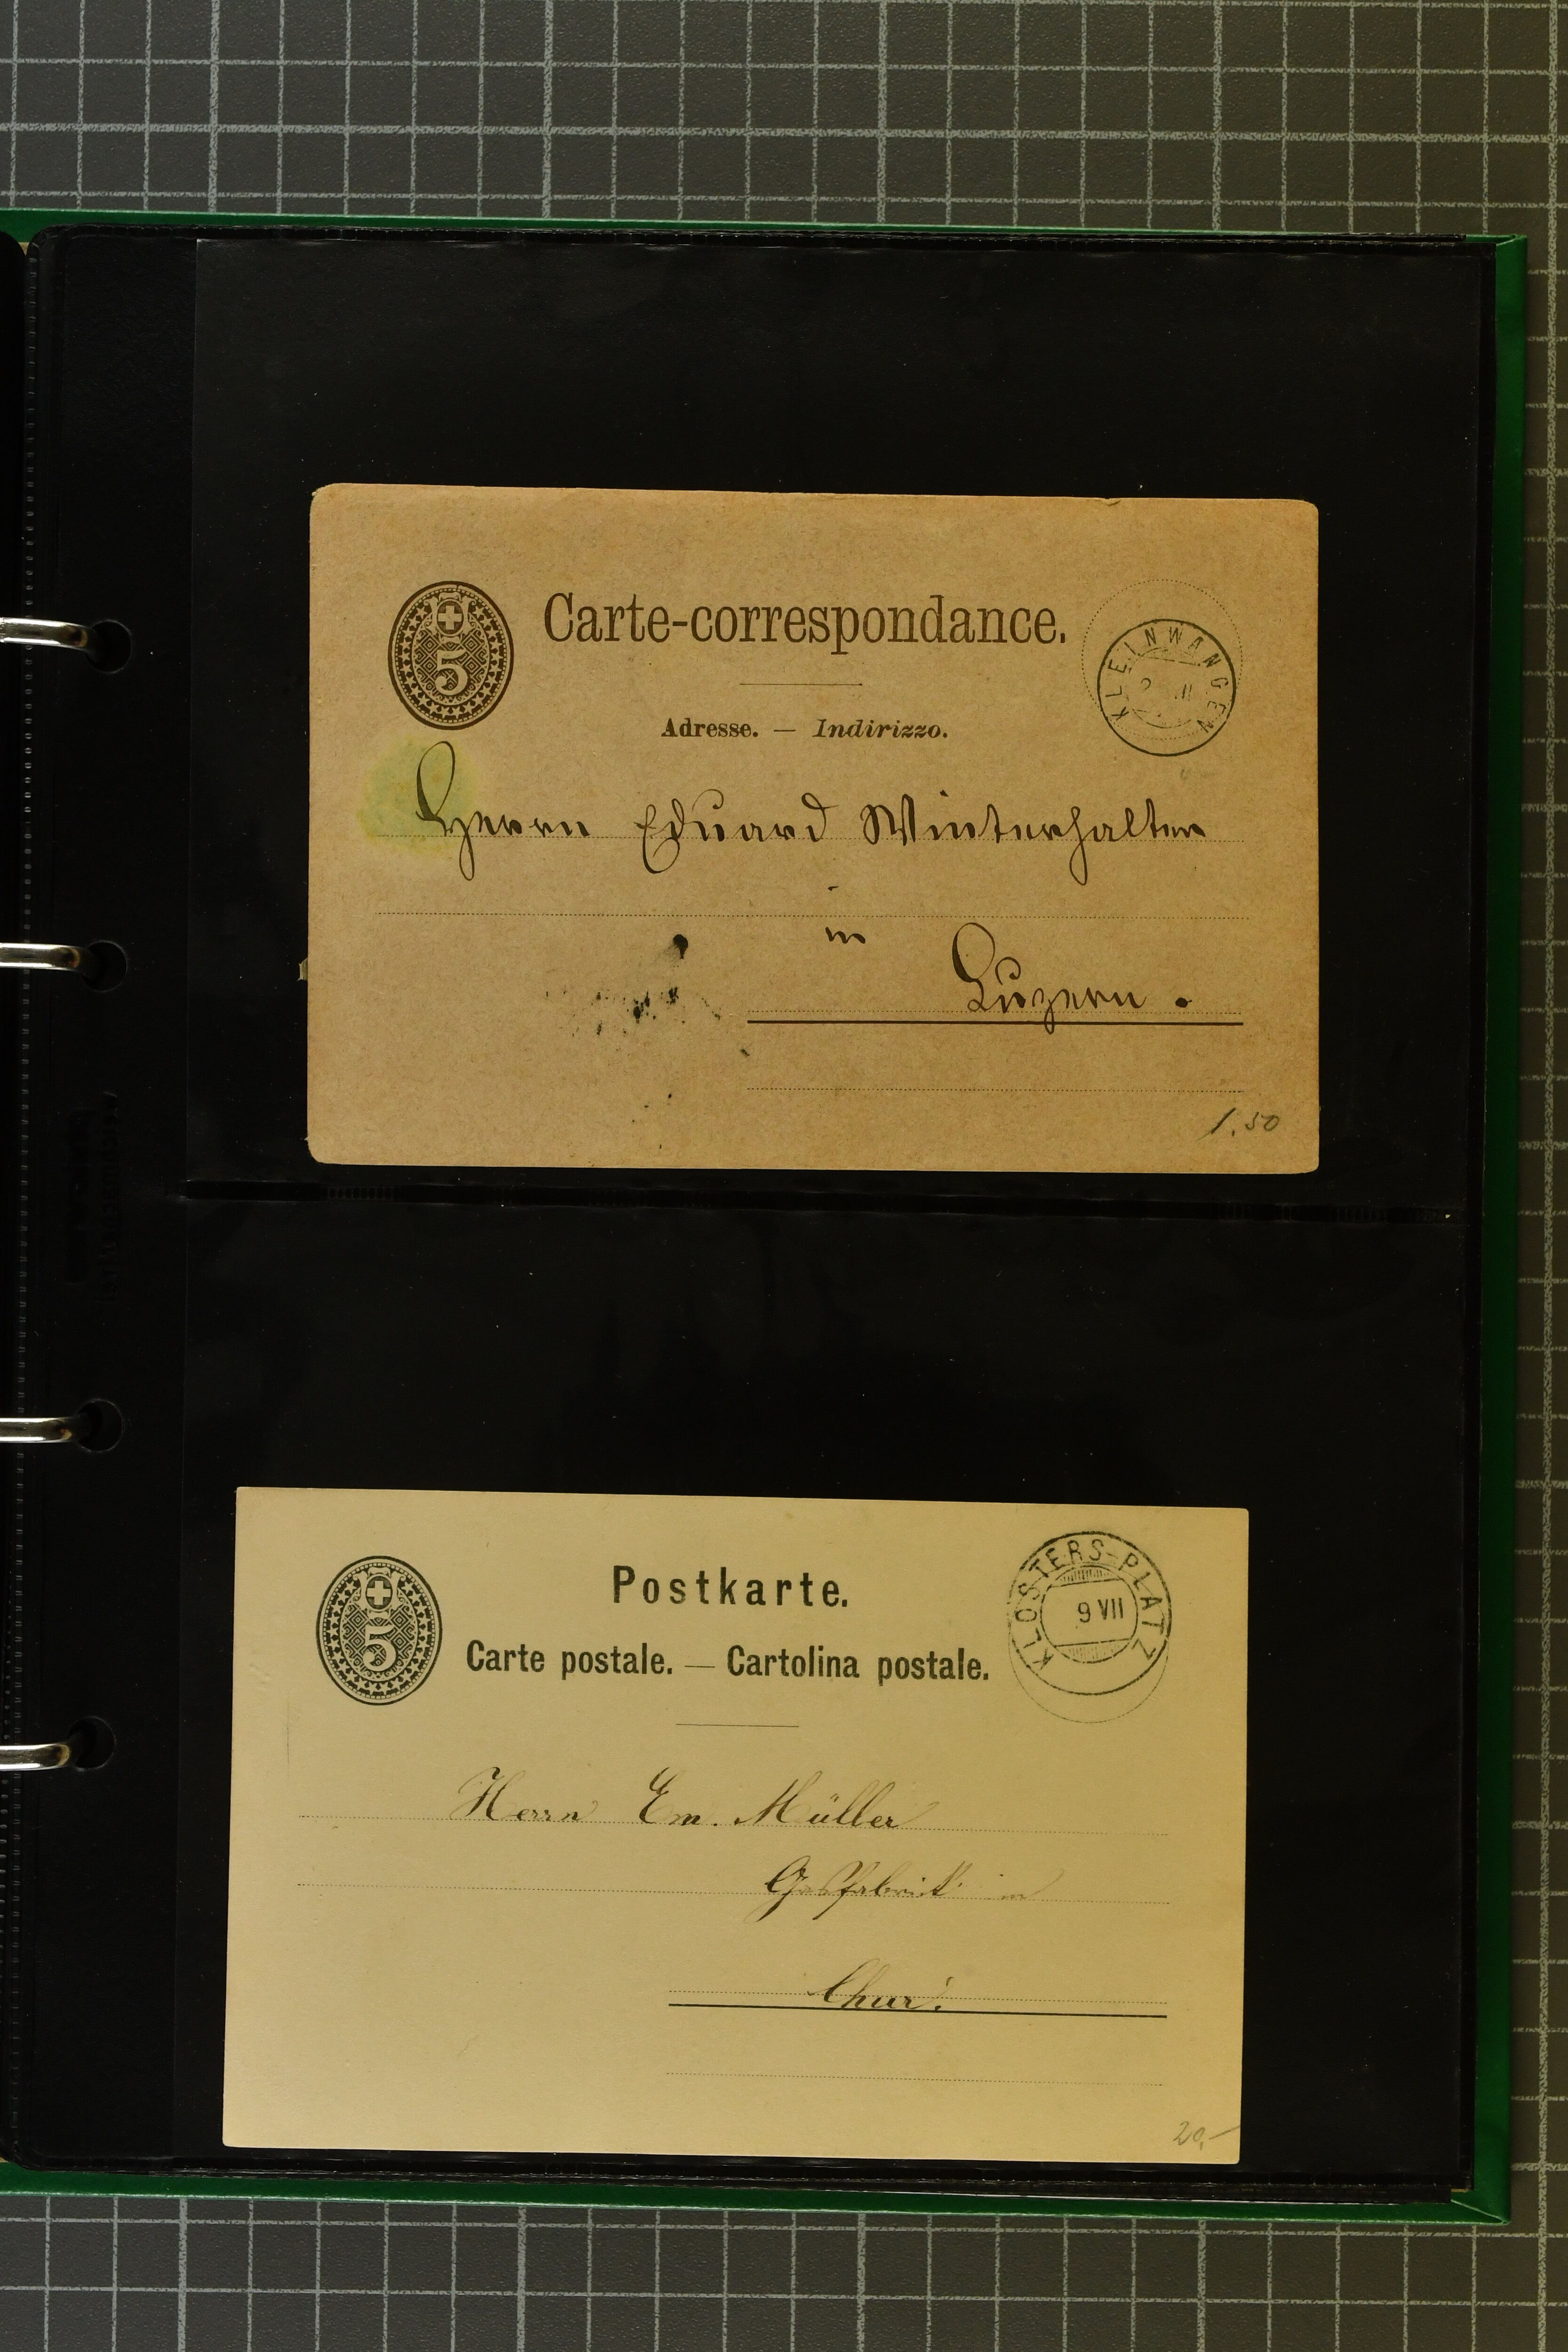 5
Carte-correspondance.
KLEINWANGEN
Adresse. — Indirizzo.
Herrn Eduard Winterhalter
in
Luzern.
1.50
5
Postkarte.
Carte postale. — Cartolina postale.
KLOSTERS-PLATZ
9 VII
Herrn Em. Müller
Gasfabrik in
Chur.
20,-